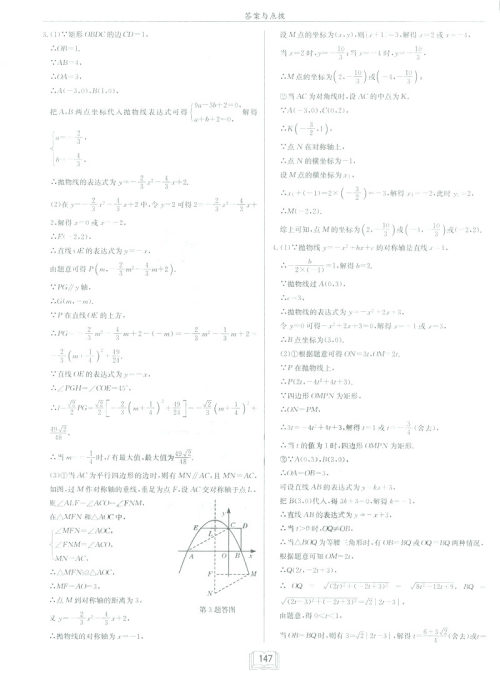 答案与点拨
3.(1)∵矩形OBDC的边CD=1,
∴OB=1,
∵AB=4,
∴OA=3,
∴A(-3,0),B(1,0),
把A,B两点坐标代入抛物线表达式可得{9a-3b+2=0, a+b+2=0, 解得
{a=-2/3, b=-4/3,
∴抛物线的表达式为y=-2/3x²-4/3x+2.
(2)在y=-2/3x²-4/3x+2中,令y=2可得2=-2/3x²-4/3x+
2,解得x=0或x=-2,
∴E(-2,2),
∴直线OE的表达式为y=-x,
由题意可得P(m,-2/3m²-4/3m+2),
∵PG∥y轴,
∴G(m,-m),
∵P在直线OE的上方,
∴PG=-2/3m²-4/3m+2-(-m)=-2/3m²-1/3m+2=
-2/3(m+1/4)²+49/24,
∵直线OE的表达式为y=-x,
∴∠PGH=∠COE=45°,
∴l=√2/2PG=√2/2[-2/3(m+1/4)²+49/24]=-√2/3(m+1/4)²+
49√2/48,
∴当m=-1/4时,l有最大值,最大值为49√2/48.
(3)①当AC为平行四边形的边时,则有MN∥AC,且MN=AC,
如图,过M作对称轴的垂线,垂足为点F,设AC交对称轴于点L,
则∠ALF=∠ACO=∠FNM,
在△MFN和△AOC中,
{∠MFN=∠AOC, ∠FNM=∠ACO, MN=AC,
∴△MFN≌△AOC,
∴MF=AO=3,
∴点M到对称轴的距离为3,
又y=-2/3x²-4/3x+2,
∴抛物线的对称轴为x=-1,
y
E
C
D
L
A
O
B
x
F
M
N
第3题答图
设M点的坐标为(x,y),则|x+1|=3,解得x=2或x=-4,
当x=2时,y=-10/3,当x=-4时,y=-10/3,
∴M点的坐标为(2,-10/3)或(-4,-10/3);
②当AC为对角线时,设AC的中点为K,
∵A(-3,0),C(0,2),
∴K(-3/2,1),
∵点N在对称轴上,
∴点N的横坐标为-1,
设M点的横坐标为x₁,
∴x₁+(-1)=2×(-3/2)=-3,解得x₁=-2,此时y₁=2,
∴M(-2,2).
综上可知,点M的坐标为(2,-10/3)或(-4,-10/3)或(-2,2).
4.(1)∵抛物线y=-x²+bx+c的对称轴是直线x=1,
∴-b/(2×(-1))=1,解得b=2,
∵抛物线过A(0,3),
∴c=3,
∴抛物线的表达式为y=-x²+2x+3,
令y=0可得-x²+2x+3=0,解得x=-1或x=3,
∴B点坐标为(3,0).
(2)①根据题意可得ON=3t,OM=2t,
∵P在抛物线上,
∴P(2t,-4t²+4t+3),
∵四边形OMPN为矩形,
∴ON=PM,
∴3t=-4t²+4t+3,解得t=1或t=-3/4(舍去),
∴当t的值为1时,四边形OMPN为矩形.
②∵A(0,3),B(3,0),
∴OA=OB=3,
可设直线AB的表达式为y=kx+3,
把B(3,0)代入,得3k+3=0,解得k=-1,
∴直线AB的表达式为y=-x+3,
∴当t>0时,OQ≠OB,
∴当△BOQ为等腰三角形时,有OB=BQ或OQ=BQ两种情况,
根据题意可知OM=2t,
∴Q(2t,-2t+3),
∴OQ=√((2t)²+(-2t+3)²)=√(8t²-12t+9),BQ=
√((2t-3)²+(-2t+3)²)=√2|2t-3|,
由题意,得0<t<1,
当OB=BQ时,则有3=√2|2t-3|,解得t=(6+3√2)/4(舍去)或t=
147